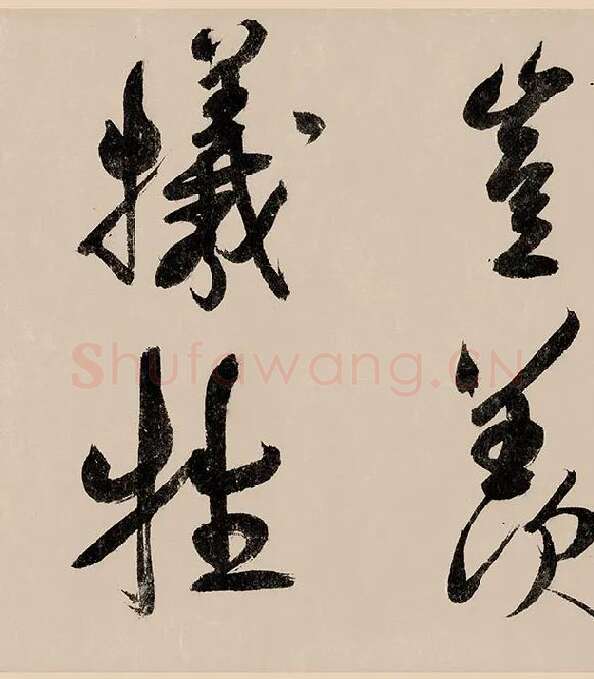 豈羨
犧牲
Shufawang.CN